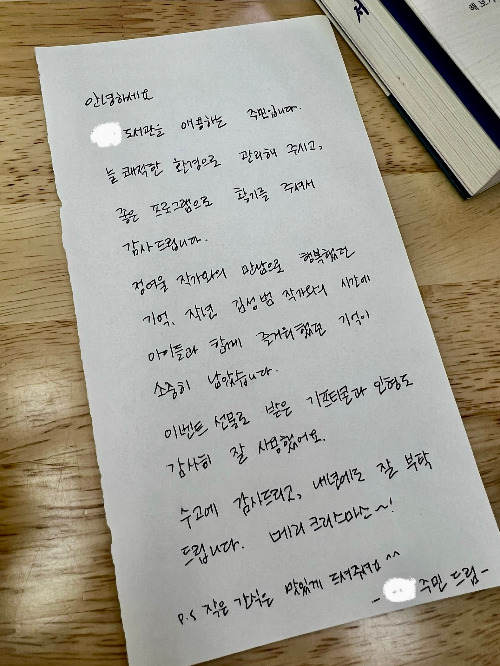 안녕하세요
도서관을 애용하는 주민입니다.
늘 쾌적한 환경으로 관리해 주시고,
좋은 프로그램으로 활기를 주셔서
감사드립니다.
정여울 작가와의 만남으로 행복했던
기억, 작년 김성범 작가와의 시간에
아이들과 함께 즐거워했던 기억이
소중히 남았습니다.
이벤트 선물로 받은 기프티콘과 인형도
감사히 잘 사용했어요.
수고에 감사드리고, 내년에도 잘 부탁
드립니다. 메리 크리스마스~!
P.S 작은 간식은 맛있게 드셔주셔요 ^^
- 주민 드림 -